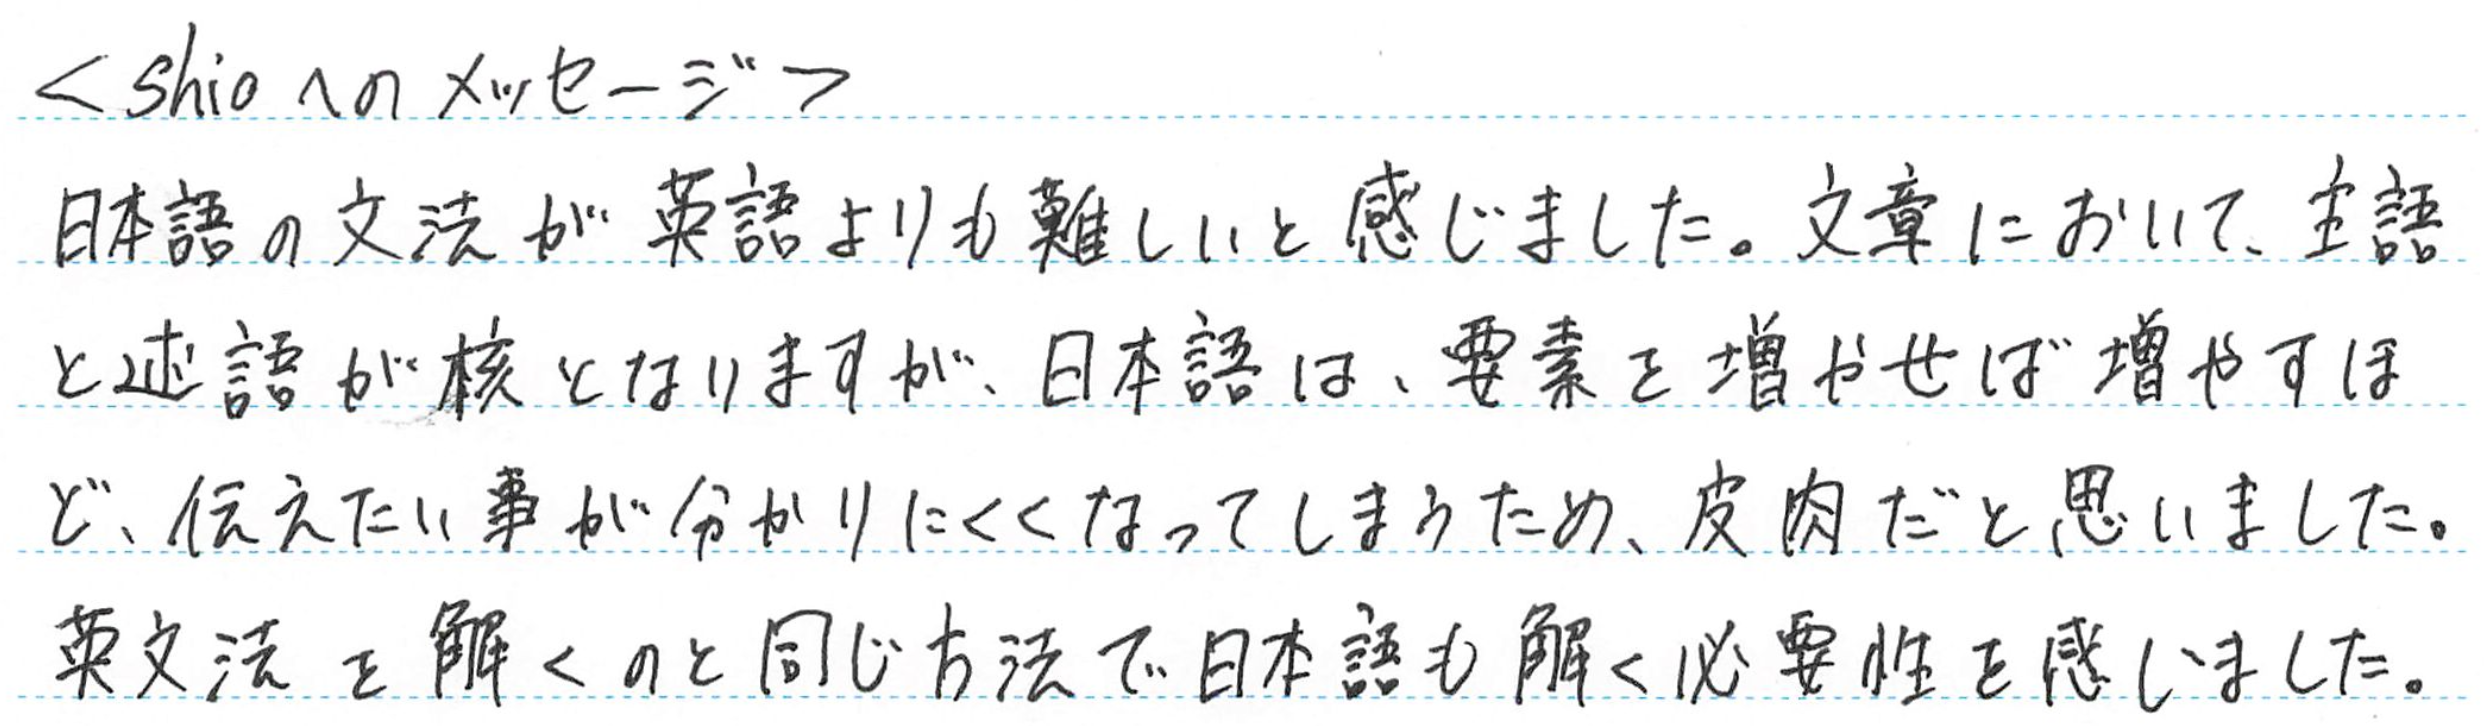 <shioへのメッセージ>
日本語の文法が英語よりも難しいと感じました。文章において、主語
と述語が核となりますが、日本語は、要素を増やせば増やすほ
ど、伝えたい事が分かりにくくなってしまうため、皮肉だと思いました。
英文法を解くのと同じ方法で日本語も解く必要性を感じました。